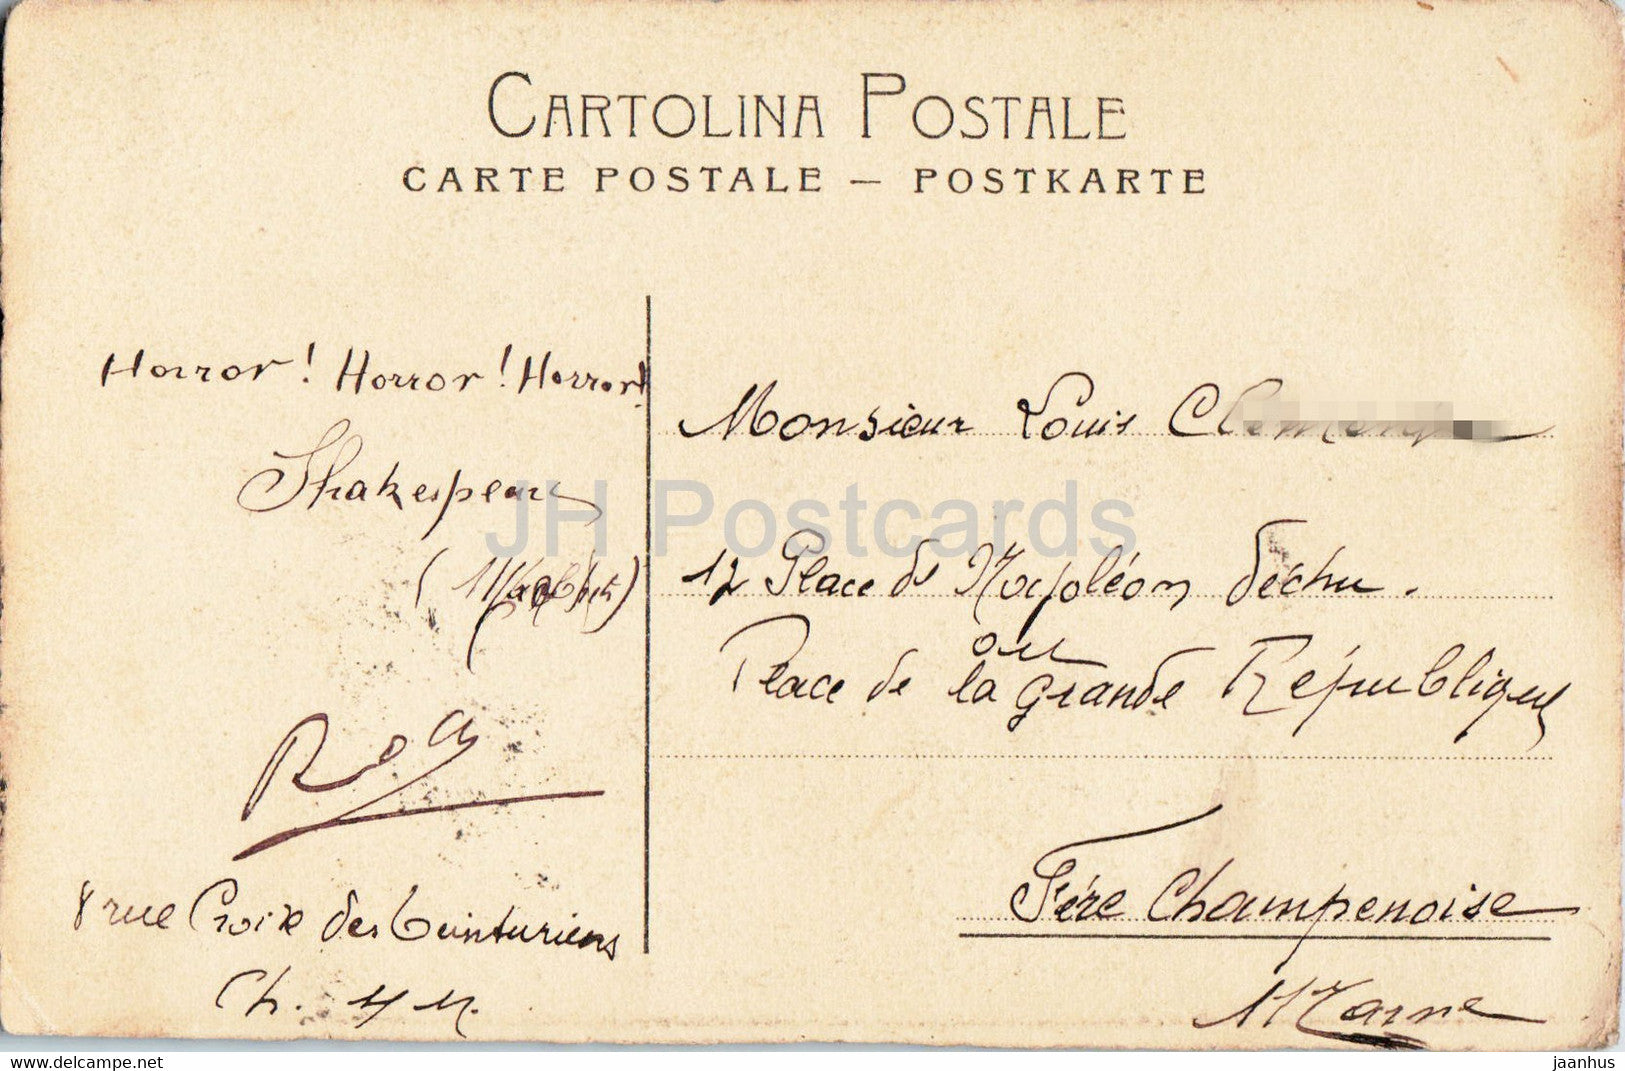 CARTOLINA POSTALE
CARTE POSTALE — POSTKARTE
Horror! Horror! Horror!
Shakespeare
(Macbeth)
8 rue Croix des Teinturiers
Ch. s/ M.
Monsieur Louis
12 Place de Napoléon déchu.
ou
Place de la Grande République
Fère Champenoise
Marne
JH Postcards
https://www.delcampe.net
jaanhus